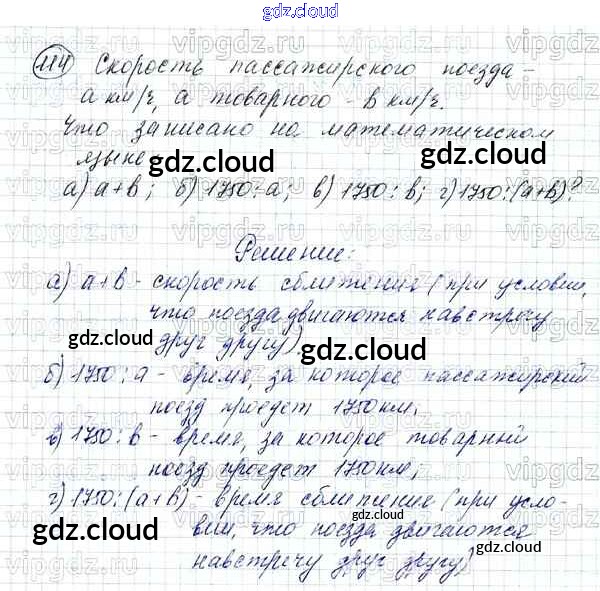 gdz.cloud
114 Скорость пассажирского поезда -
a км/ч, а товарного - b км/ч.
Что записано на математическом
языке
gdz.cloud
gdz.cloud
а) a+b; б) 1750:a; в) 1750:b; г) 1750:(a+b)?
Решение:
а) a+b - скорость сближения (при условии,
что поезда двигаются навстречу
друг другу),
gdz.cloud
gdz.cloud
б) 1750:a - время, за которое пассажирский
поезд проедет 1750км,
в) 1750:b - время, за которое товарный
поезд проедет 1750км,
г) 1750:(a+b) - время сближение (при усло-
gdz.cloud
gdz.cloud
вии, что поезда двигаются
навстречу друг другу)
gdz.cloud
gdz.cloud